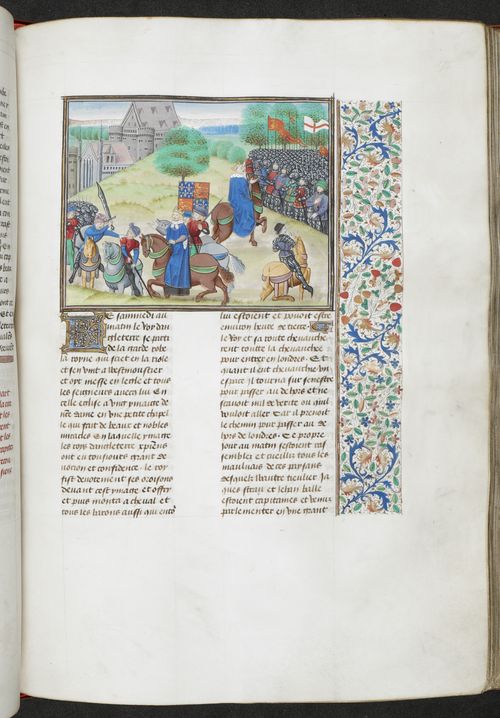 Le sammedi au
matin le Roy dan
gleterre se parti
de la garde robe
la royne qui siet en la riole
et sen vint a westmoustier
et oyt messe en leglise et tous
les seigneurs auecq lui En
celle eglise a vne ymaige de
nre dame en vne petite chapel
le qui fait de beaux et nobles
miracles En laquelle ymaige
les roys dangleterre
ont eu tousiours grant de
uotion et confidence le roy
fist deuotement ses oroisons
deuant cest ymaige et offry
et puis monta a cheual et
tous les barons aussi qui
lui estoient et pouoit estre
enuiron heure de tierce
Le Roy et sa toute cheuauchie
rent toutte la cheuauchee
pour entrer en londres Et
quant il eut cheuauchie vn
espace il tourna sur senestre
pour passer au dehors et ne
scauoit nul de verite ou quil
vouloit aller Car il prenoit
le chemin pour passer au de
hors de londres Ce propre
iour au matin sestoient ras
semblez et cueillis tous les
mauluais de ces paisans
desquelz wautre tieulier Ja
ques strau et Jehan balle
estoient capitaines et venus
parlementer en vne grant